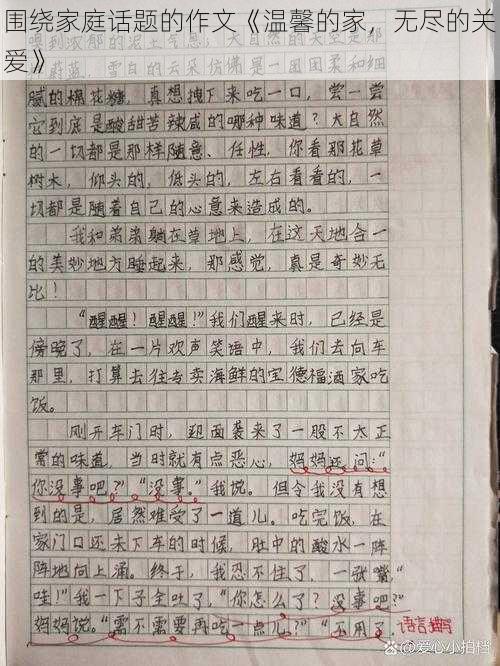 围绕家庭话题的作文《温馨的家，无尽的关
爱》
腻的棉花糖，真想拽下来吃一口，尝一尝
它到底是酸甜苦辣咸的哪种味道？大自然
的一切都是那样随意、任性，你看那花草
树木，仰头的，低头的，左右看看的，一
切都是随着自己的心意来造成的。
我和弟弟躺在草地上，在这天地合一
的美妙地方睡起来，那感觉，真是奇妙无
比！
“醒醒！醒醒！”我们醒来时，已经是
傍晚了，在一片欢声笑语中，我们去向车
那里，打算去往专卖海鲜的宝德福酒家吃
饭。
刚开车门时，迎面袭来了一股不太正
常的味道，当时就有点恶心，妈妈还问：“
你没事吧？”“没事。”我说。但令我没有想
到的是，居然难受了一道儿。吃完饭，在
家门口还未下车的时候，肚中的酸水一阵
阵地向上涌。终于，我忍不住了，一张嘴，“
哇！”我一下子全吐了，“你怎么了？没事吧？”
妈妈说。“需不需要再吃一点儿？”“不用了，
语言描写
@爱心小拍档